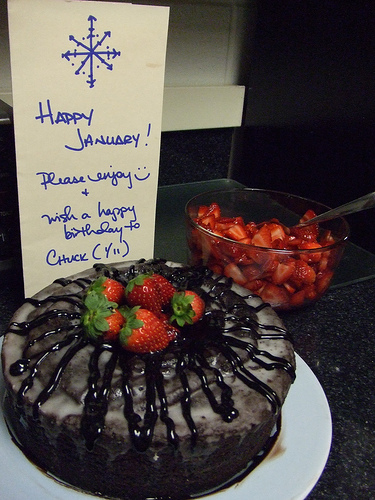 HAPPY
JANUARY!
Please enjoy
+
wish a happy
birthday to
CHUCK (1/11)